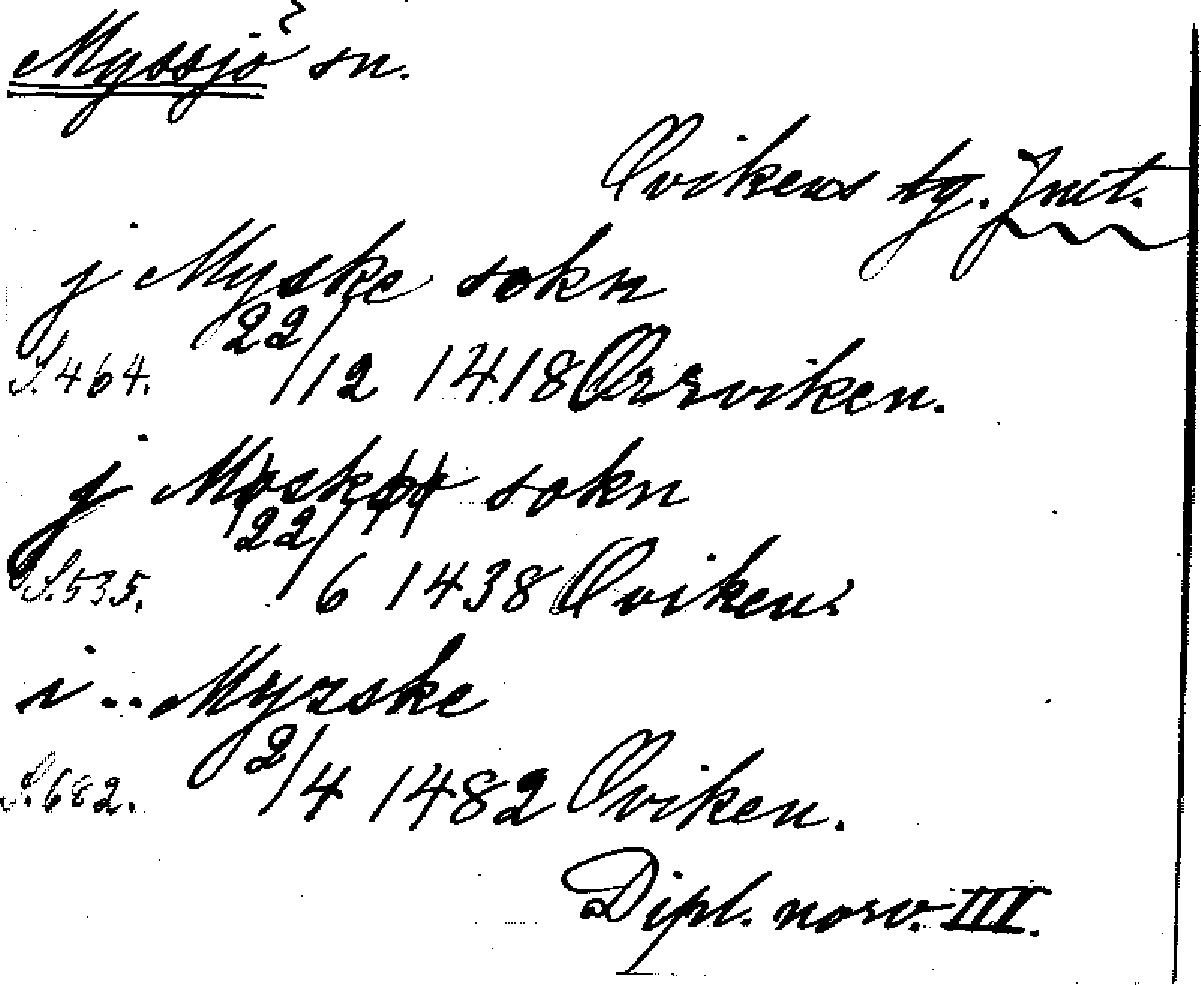 Myssjö sn.
Ovikens tg. Jmt.
j Myske sokn
S. 464. 22/12 1418 Orrviken.
j sokn
S. 535. 22/6 1438 Oviken.
i .. Myrske
S. 682. 2/4 1482 Oviken.
Dipl. norv. III.